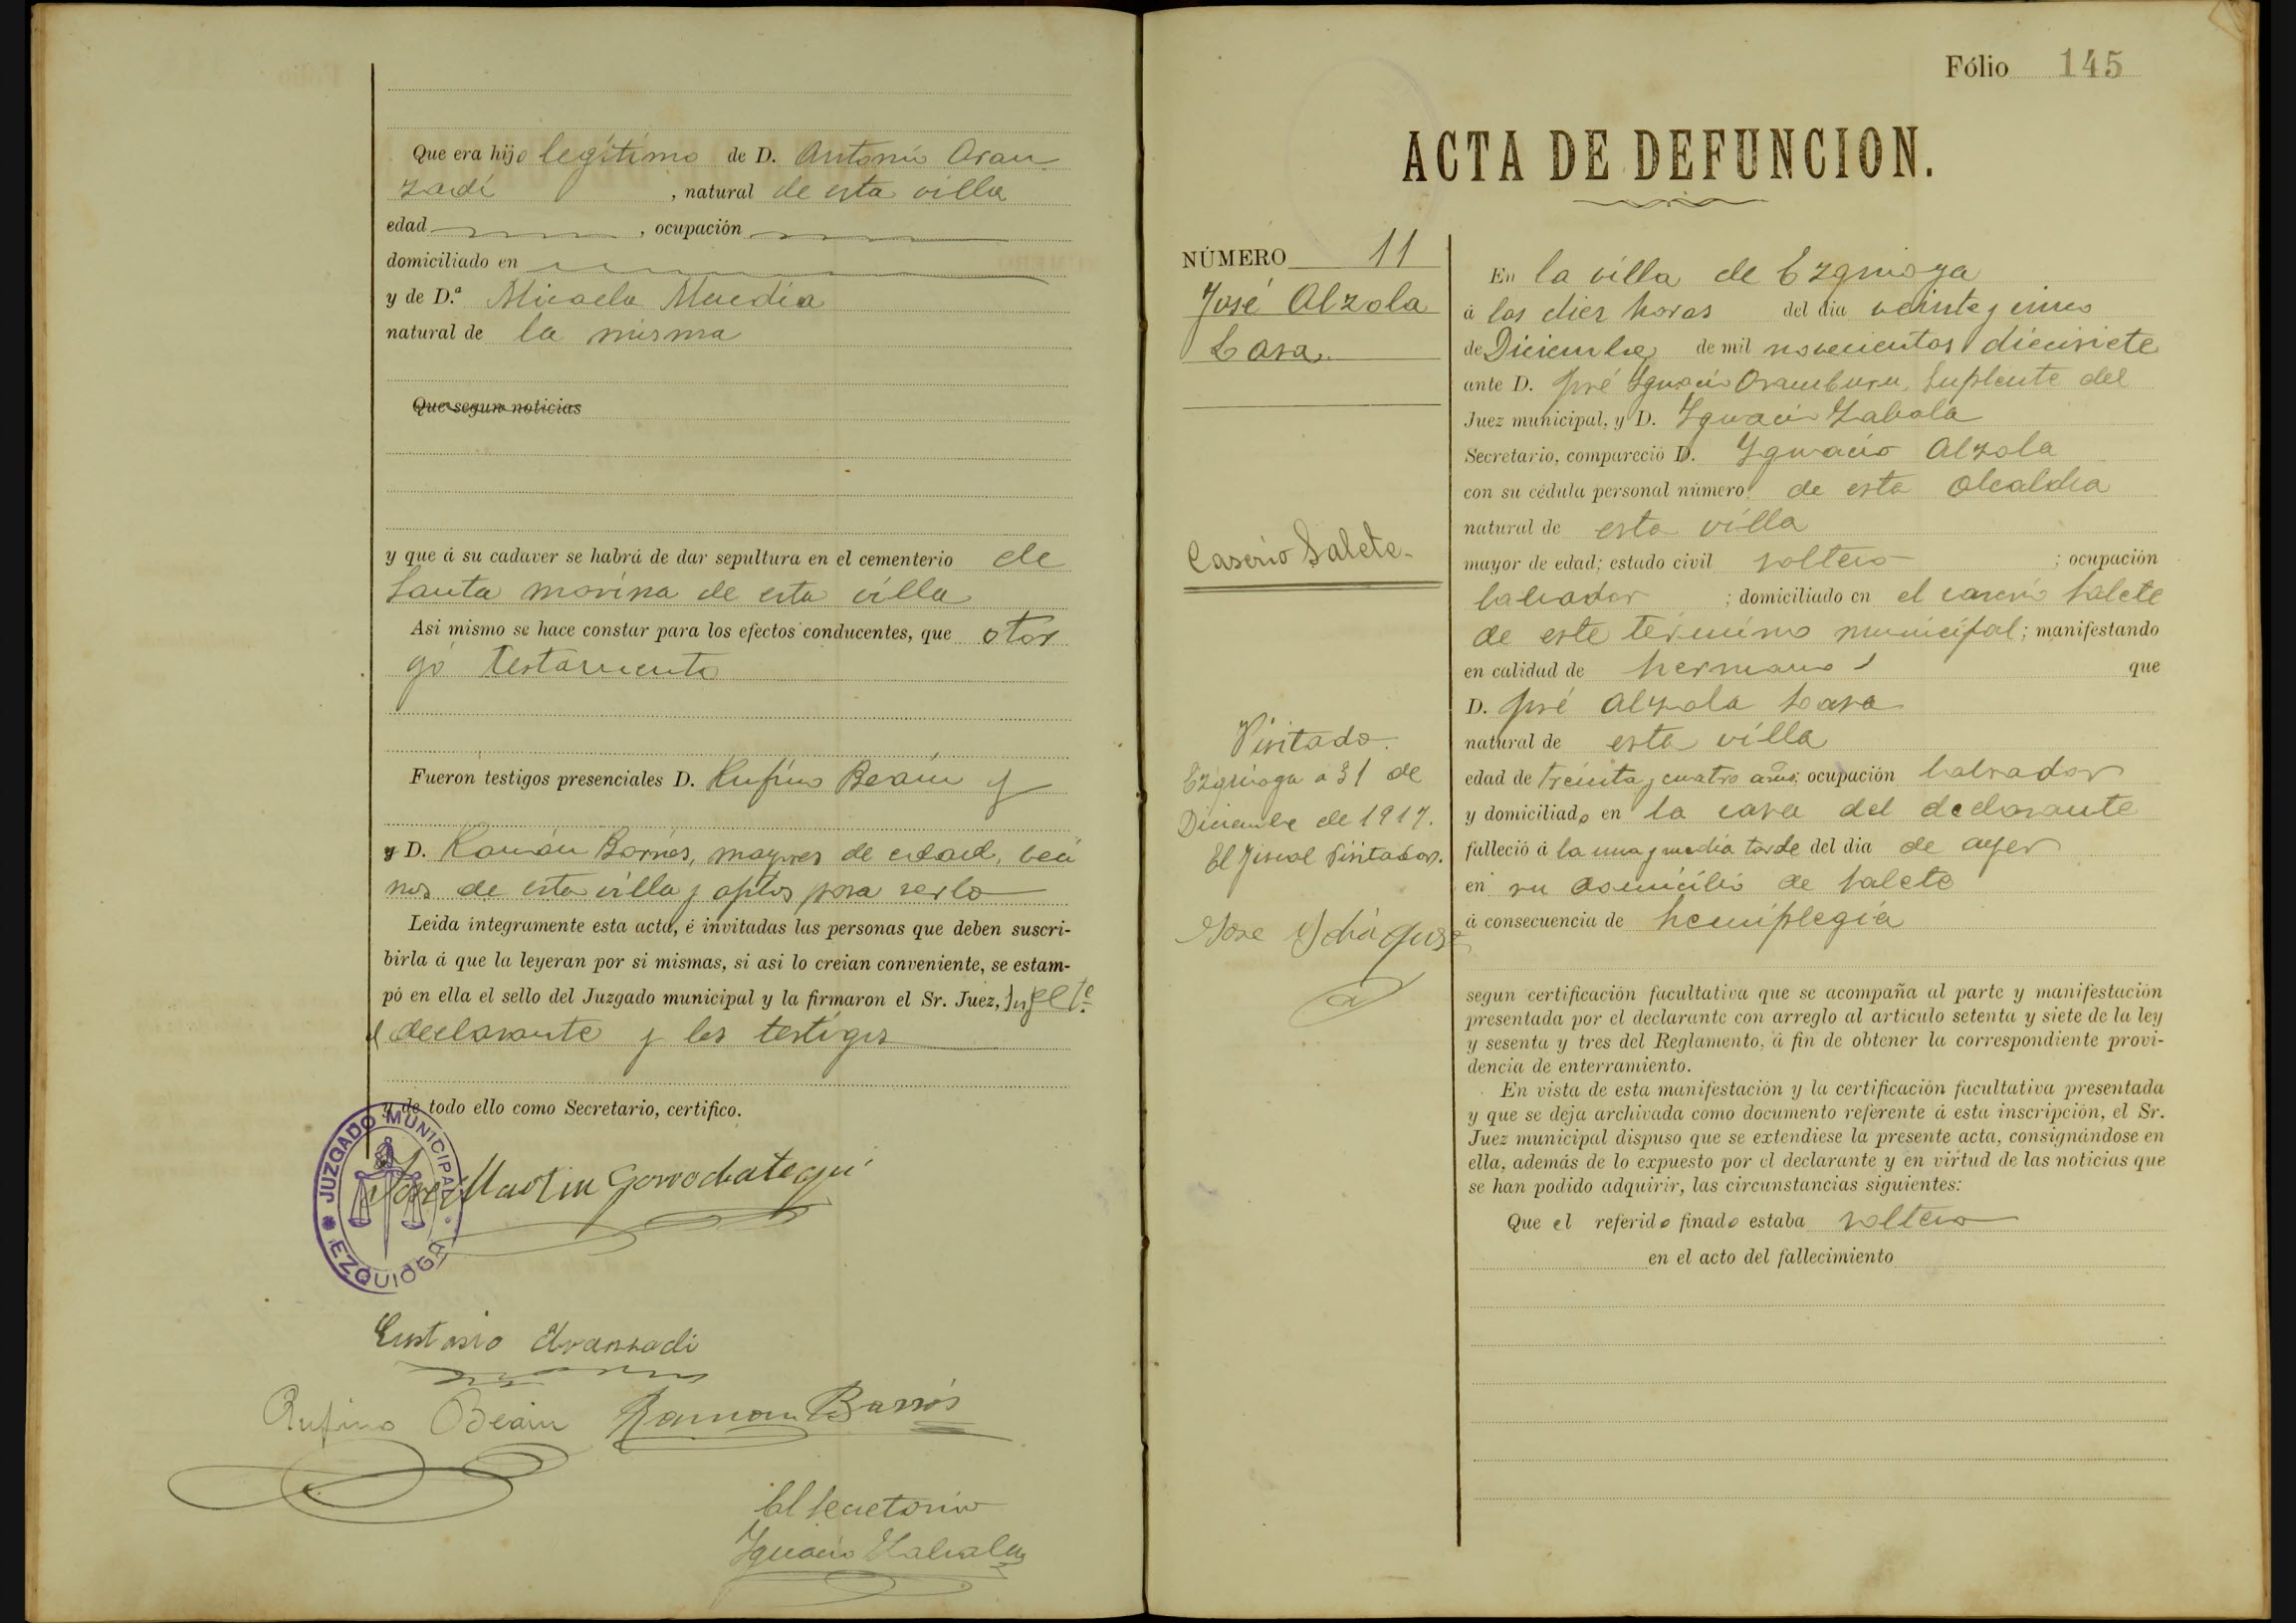 Que era hijo legítimo de D. Antonio Aran
zadi , natural de esta villa
edad , ocupación
domiciliado en
y de D.ª Micaela Mendia
natural de la misma
Que segun noticias
y que á su cadaver se habrá de dar sepultura en el cementerio de
Santa Marina de esta villa
Asi mismo se hace constar para los efectos conducentes, que otor
gó testamento
Fueron testigos presenciales D. Rufino Beain y
y D. Ramón Barrios, mayores de edad, veci
nos de esta villa y aptos para serlo
Leida integramente esta acta, é invitadas las personas que deben suscri-
birla á que la leyeran por si mismas, si asi lo creian conveniente, se estam-
pó en ella el sello del Juzgado municipal y la firmaron el Sr. Juez, Suplte
el declarante y los testigos
y de todo ello como Secretario, certifico.
JUZGADO MUNICIPAL
EZQUIOGA
José Martin Gorrochategui
Eustasio Aranzadi
Rufino Beain Ramon Barrios
El Secretario
Ygnacio Zabala
Fólio 145
ACTA DE DEFUNCION.
NÚMERO 11
José Alzola
Lasa.
Caserio Salete.
Visitado.
Ezquioga a 31 de
Diciembre de 1917.
El Fiscal Visitador.
Jose
En la villa de Ezquioga
á las diez horas del dia veinte y cinco
de Diciembre de mil novecientos diecisiete
ante D. José Ygnacio Aramburu, Suplente del
Juez municipal, y D. Ygnacio Zabala
Secretario, compareció D. Ygnacio Alzola
con su cédula personal número de esta Alcaldia
natural de esta villa
mayor de edad; estado civil soltero ; ocupación
labrador ; domiciliado en el caserio Salete
de este término municipal; manifestando
en calidad de hermano que
D. José Alzola Lasa
natural de esta villa
edad de treinta y cuatro años; ocupación labrador
y domiciliado en la casa del declarante
falleció á la una y media tarde del dia de ayer
en su domicilio de Salete
á consecuencia de hemiplegia
segun certificación facultativa que se acompaña al parte y manifestación
presentada por el declarante con arreglo al articulo setenta y siete de la ley
y sesenta y tres del Reglamento, á fin de obtener la correspondiente provi-
dencia de enterramiento.
En vista de esta manifestación y la certificación facultativa presentada
y que se deja archivada como documento referente á esta inscripción, el Sr.
Juez municipal dispuso que se extendiese la presente acta, consignándose en
ella, además de lo expuesto por el declarante y en virtud de las noticias que
se han podido adquirir, las circunstancias siguientes:
Que el referido finado estaba soltero
en el acto del fallecimiento